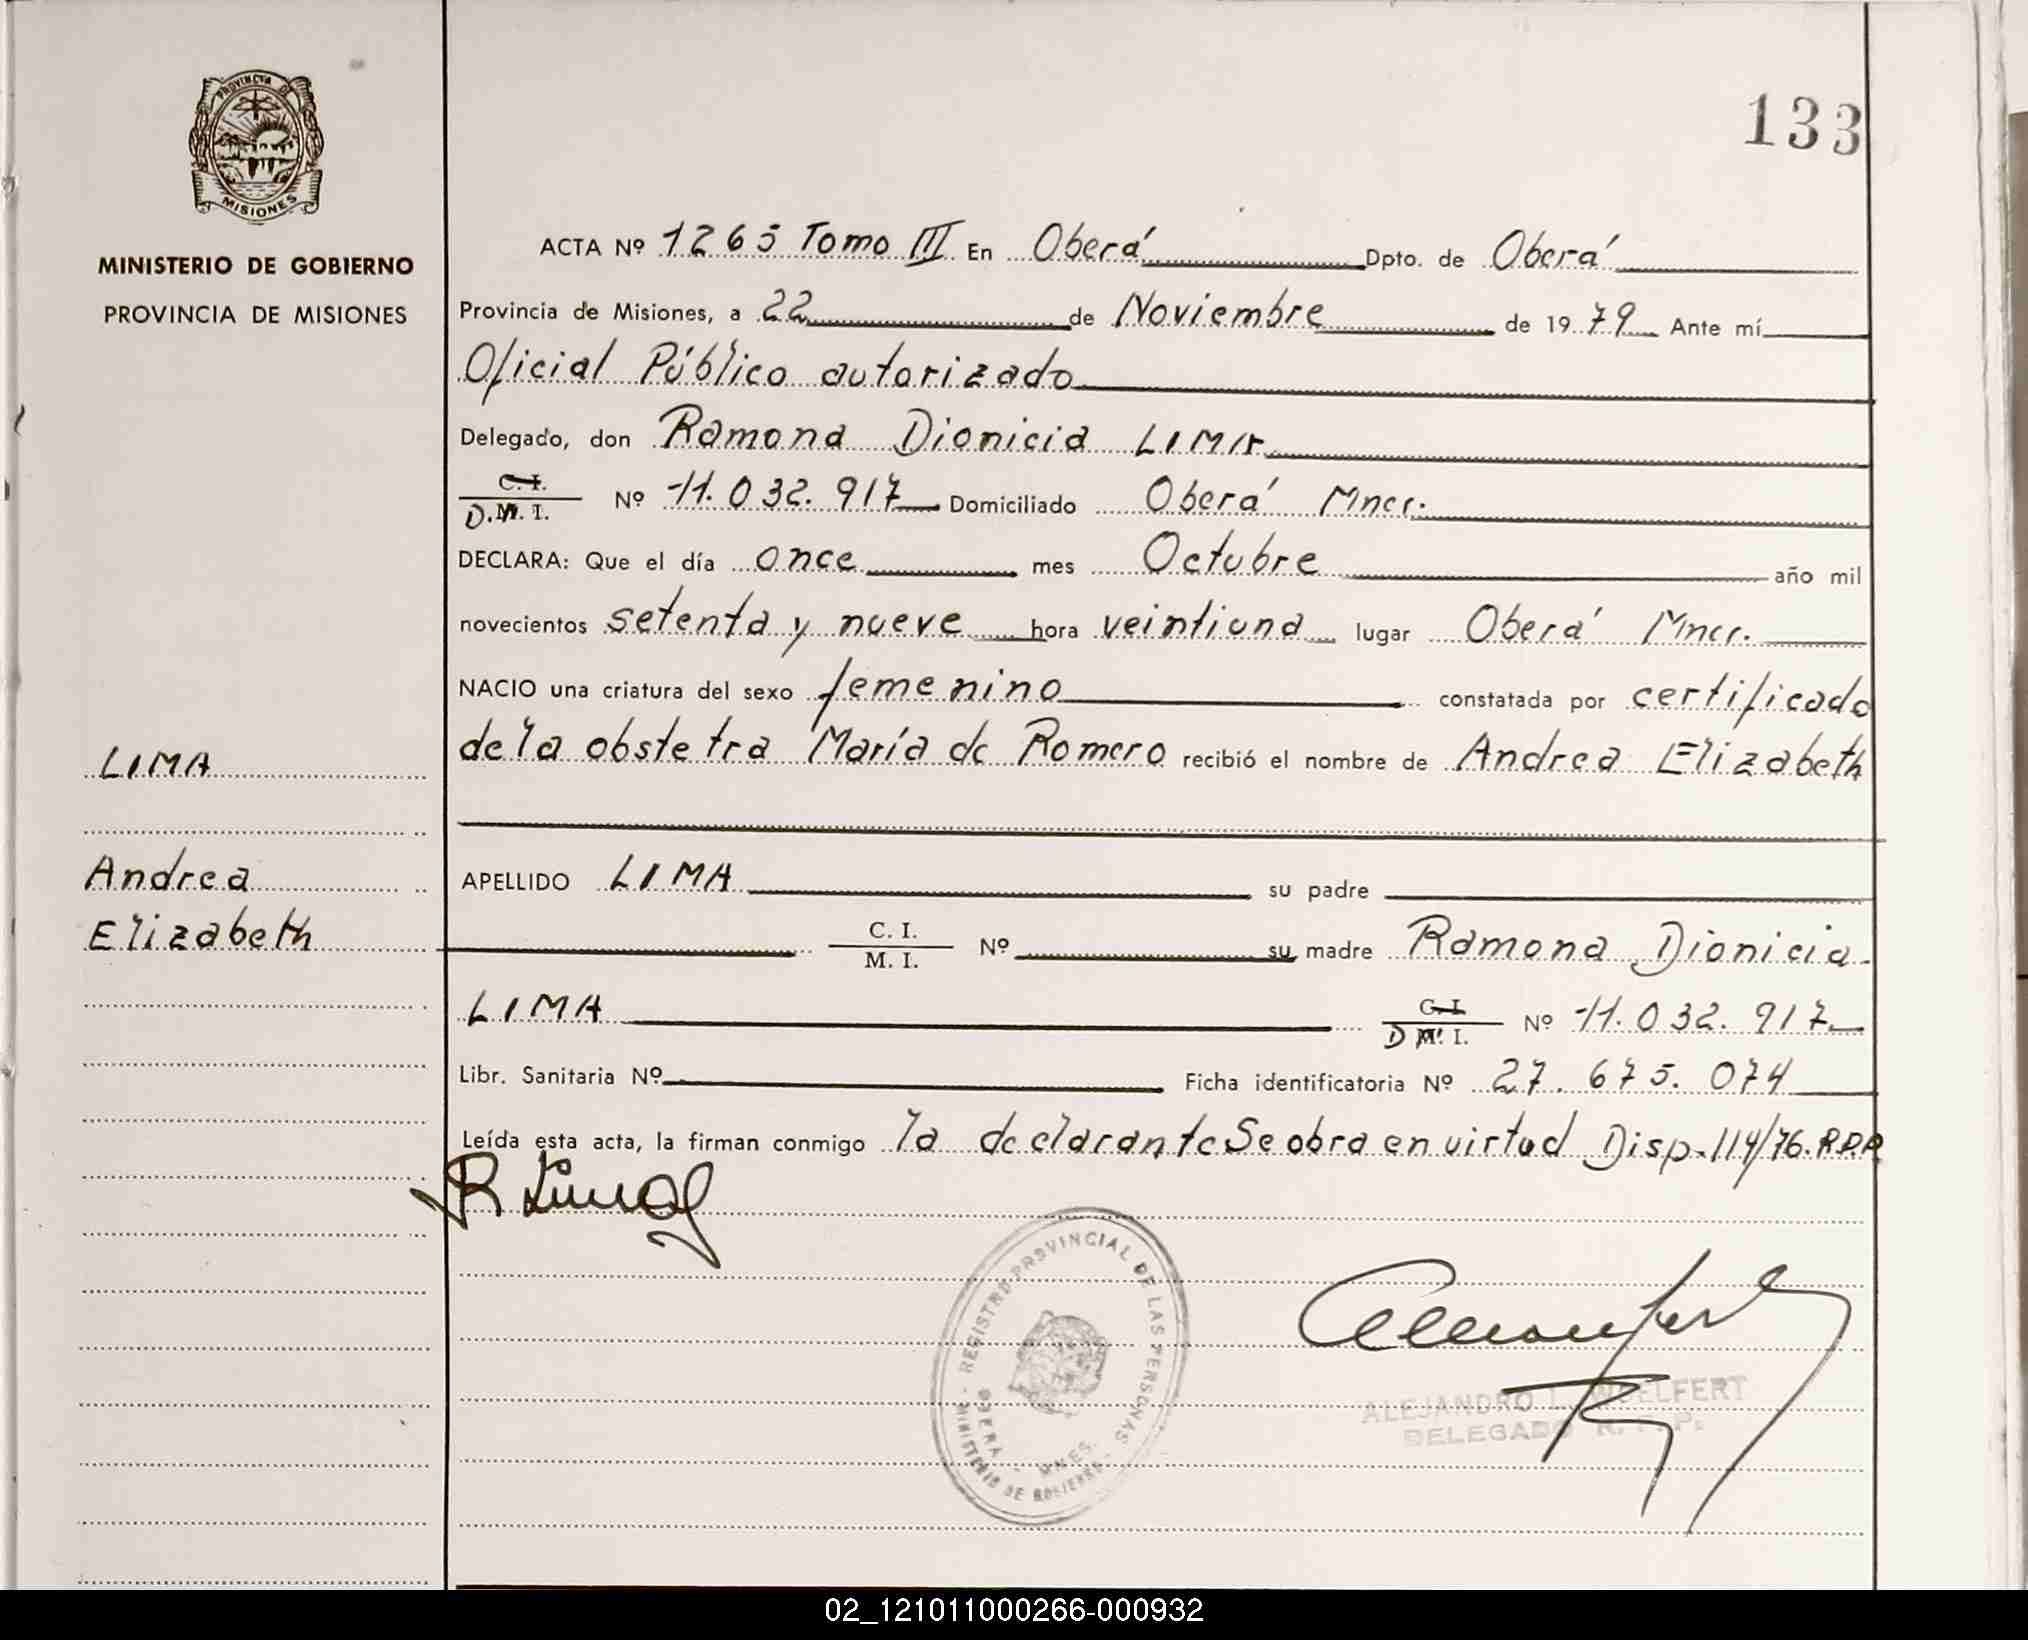 133
PROVINCIA DE
MISIONES
MINISTERIO DE GOBIERNO
PROVINCIA DE MISIONES
ACTA Nº 1265 Tomo III En Oberá Dpto. de Oberá
Provincia de Misiones, a 22 de Noviembre de 1979 Ante mí
Oficial Público autorizado
Delegado, don Ramona Dionicia LIMA
C. I.
D.M. I. Nº 11.032.917 Domiciliado Oberá Mnes.
DECLARA: Que el día once mes Octubre año mil
novecientos setenta y nueve hora veintiuna lugar Oberá Mnes.
NACIO una criatura del sexo femenino constatada por certificado
de la obstetra María de Romero recibió el nombre de Andrea Elizabeth
LIMA
Andrea
Elizabeth
APELLIDO LIMA su padre
C. I.
M. I. Nº su madre Ramona Dionicia
LIMA C. I.
D M. I. Nº 11.032.917
Libr. Sanitaria Nº Ficha identificatoria Nº 27.675.074
Leída esta acta, la firman conmigo la declarante Se obra en virtud Disp. 114/76. R.P.P
R Lima
REGISTRO PROVINCIAL DE LAS PERSONAS
OBERA - MNES.
MINISTERIO DE GOBIERNO
ALEJANDRO L. WOELFERT
DELEGADO R. P. P.
02_121011000266-000932